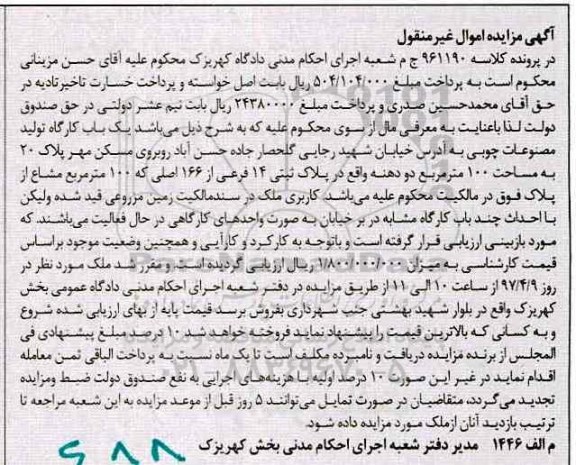 آگهی مزایده اموال غیرمنقول
در پرونده کلاسه ۹۶۱۱۹۰ ج م شعبه اجرای احکام مدنی دادگاه کهریزک محکوم علیه آقای حسن مزینانی
محکوم است به پرداخت مبلغ ۵۰۴/۱۰۴/۰۰۰ ریال بابت اصل خواسته و پرداخت خسارت تاخیرتادیه در
حق آقای محمدحسین صدری و پرداخت مبلغ ۲۴۳۸۰۰۰۰ ریال بابت نیم عشر دولتی در حق صندوق
دولت لذا باعنایت به معرفی مال از سوی محکوم علیه که به شرح ذیل می‌باشد یک باب کارگاه تولید
مصنوعات چوبی به آدرس خیابان شهید رجایی گلحصار جاده حسن آباد روبروی مسکن مهر پلاک ۲۰
به مساحت ۱۰۰ مترمربع دو دهنه واقع در پلاک ثبتی ۱۴ فرعی از ۱۶۶ اصلی که ۱۰۰ مترمربع مشاع از
پلاک فوق در مالکیت محکوم علیه می‌باشد. کاربری ملک در سندمالکیت زمین مزروعی قید شده ولیکن
با احداث چند باب کارگاه مشابه در بر خیابان به صورت واحدهای کارگاهی در حال فعالیت می‌باشند که
مورد بازبینی ارزیابی قرار گرفته است و باتوجه به کارکرد و کارآیی و همچنین وضعیت موجود براساس
قیمت کارشناسی به میزان ۱/۸۰۰/۰۰۰/۰۰۰ ریال ارزیابی گردیده است و مقرر شد ملک مورد نظر در
روز ۹۷/۴/۹ از ساعت ۱۰ الی ۱۱ از طریق مزایده در دفتر شعبه اجرای احکام مدنی دادگاه عمومی بخش
کهریزک واقع در بلوار شهید بهشتی جنب شهرداری بفروش برسد قیمت پایه از بهای ارزیابی شده شروع
و به کسانی که بالاترین قیمت را پیشنهاد نماید فروخته خواهد شد ۱۰ درصد مبلغ پیشنهادی فی
المجلس از برنده مزایده دریافت و نامبرده مکلف است تا یک ماه نسبت به پرداخت الباقی ثمن معامله
اقدام نماید در غیر این صورت ۱۰ درصد اولیه با هزینه‌های اجرایی به نفع صندوق دولت ضبط ومزایده
تجدید می‌گردد، متقاضیان در صورت تمایل می‌توانند ۵ روز قبل از موعد مزایده به این شعبه مراجعه تا
ترتیب بازدید آنان ازملک مورد مزایده داده شود.
م الف ۱۴۴۶ مدیر دفتر شعبه اجرای احکام مدنی بخش کهریزک